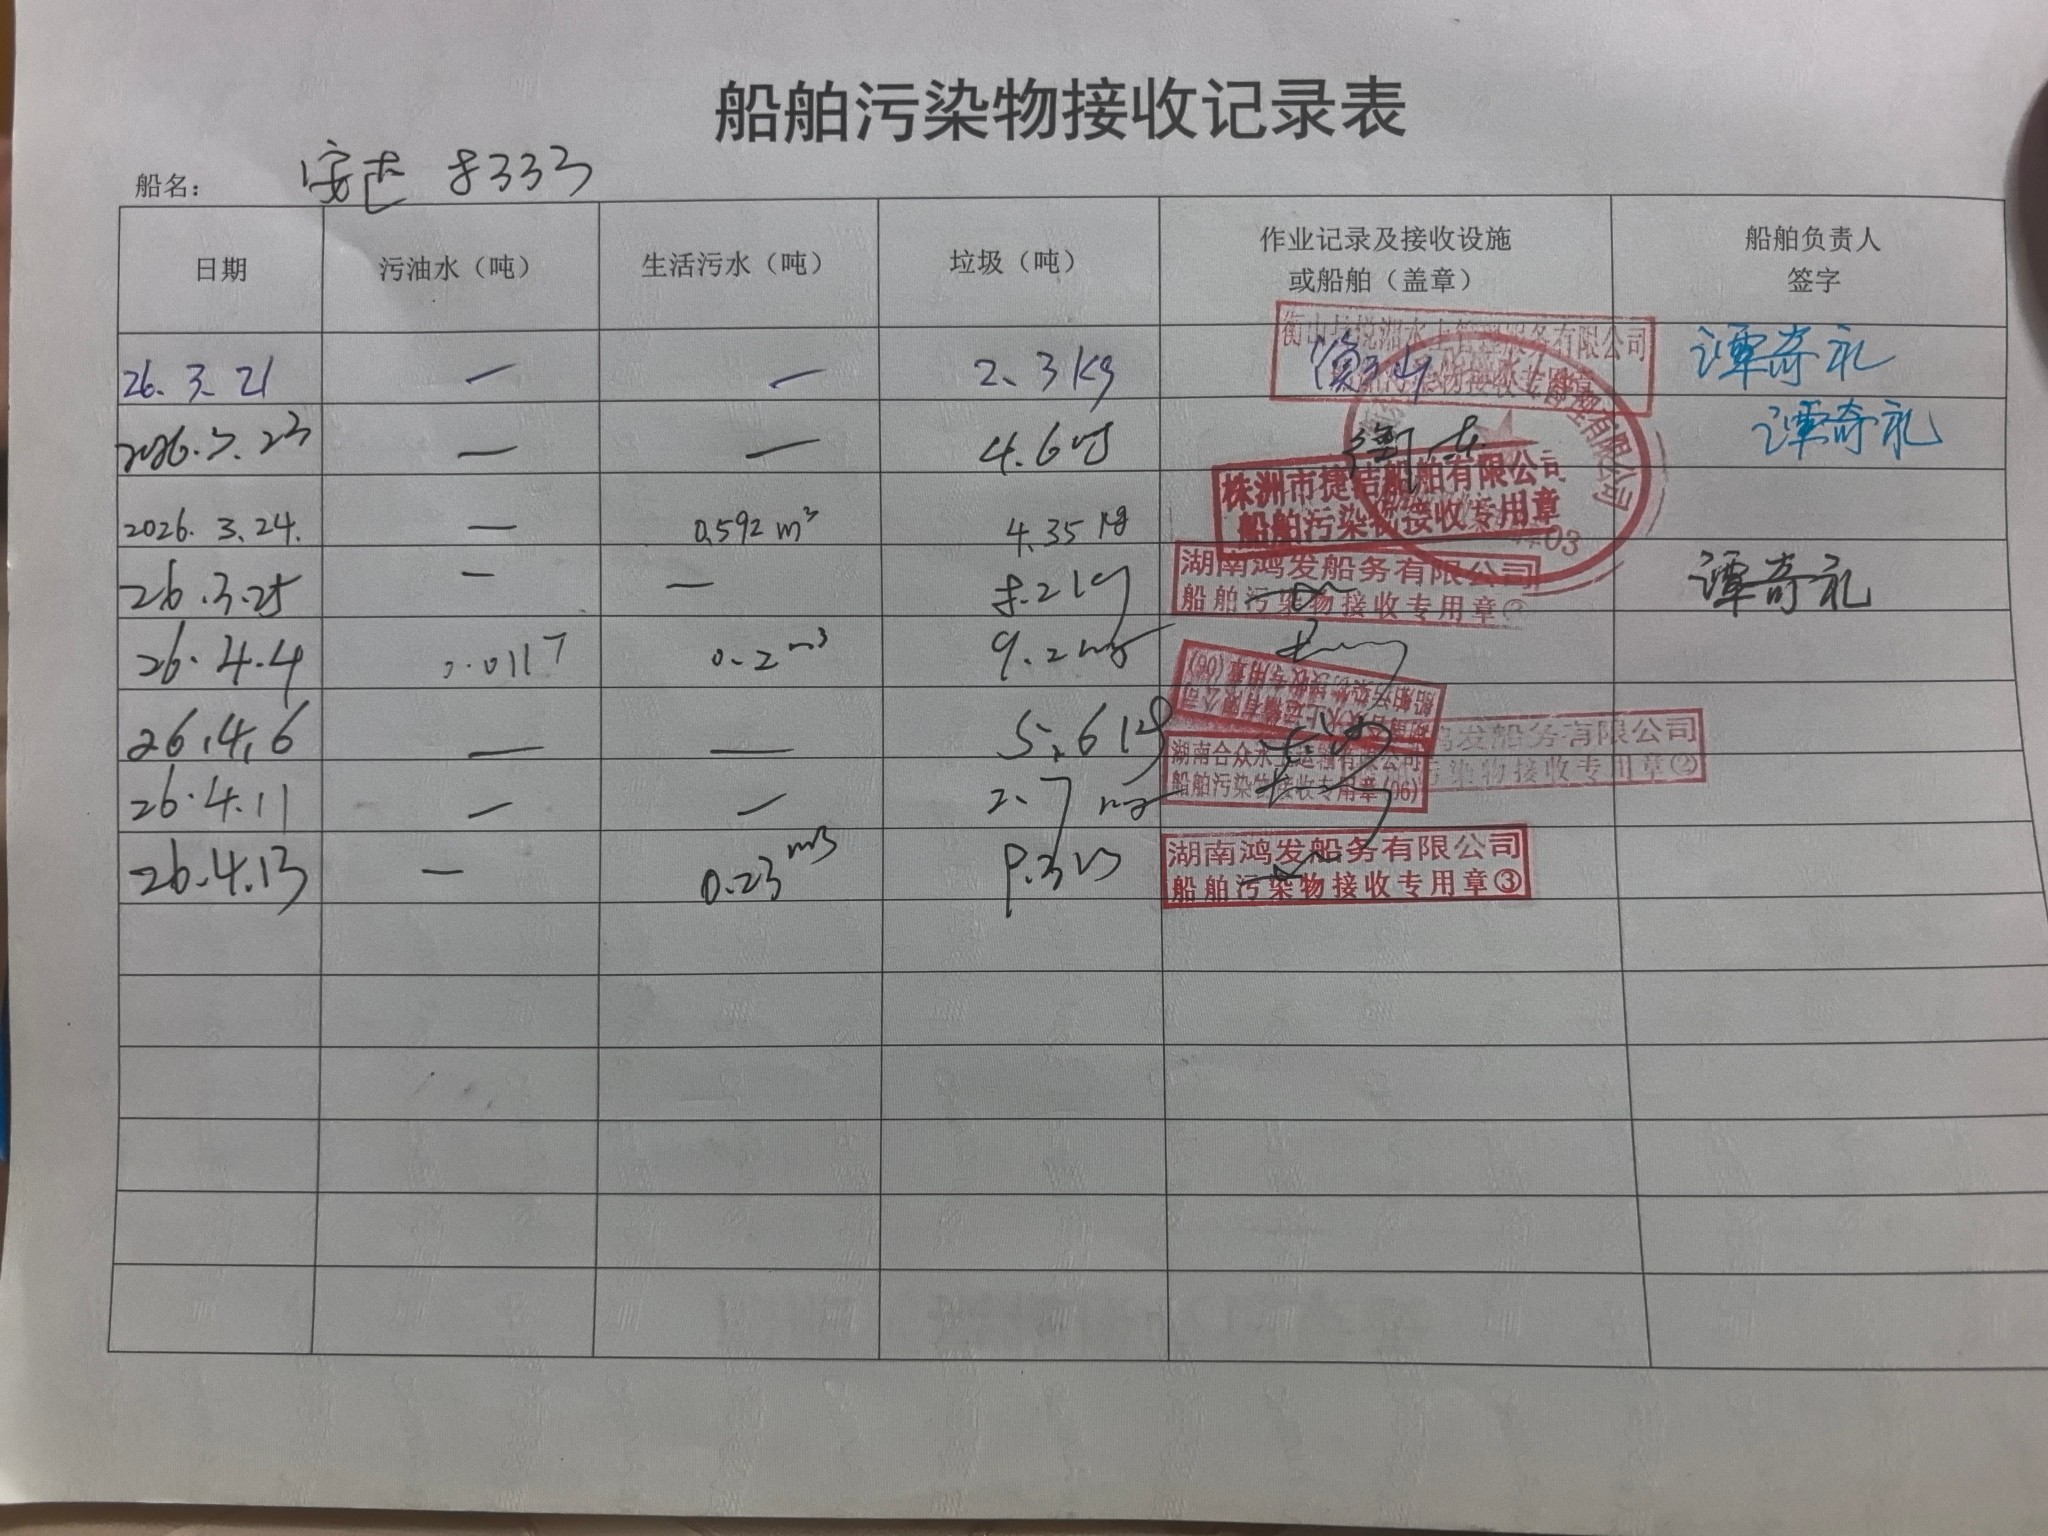 船舶污染物接收记录表
船名： 安达 8333
日期 污油水（吨） 生活污水（吨） 垃圾（吨） 作业记录及接收设施或船舶（盖章） 船舶负责人签字
26.3.21 — — 2.3kg 衡山 谭奇礼
2026.3.23 — — 4.6 衡东 谭奇礼
株洲市捷洁船舶有限公司
船舶污染物接收专用章
2026.3.24. — 0.592 m³ 4.35 kg
湖南鸿发船务有限公司
船舶污染物接收专用章②
26.3.25 — — 8.2kg 谭奇礼
26.4.4 0.0117 0.2 m³ 9.2kg
26.4.6 — — 5.6kg
鸿发船务有限公司
污染物接收专用章②
湖南合众水上运输有限公司
船舶污染物接收专用章(06)
26.4.11 — — 2.7kg
26.4.13 — 0.23 m³
湖南鸿发船务有限公司
船舶污染物接收专用章③